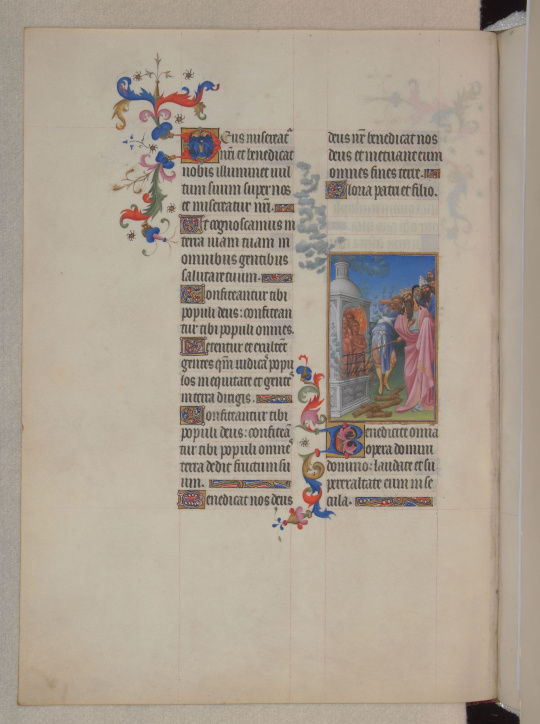 Deus misereat
nri et benedicat
nobis illuminet vul
tum suum super nos
et misereatur nri.
Ut cognoscamus in
terra viam tuam in
omnibus gentibus
salutare tuum.
Confiteantur tibi
populi deus: confitean
tur tibi populi omnes.
Letentur et exultent
gentes qm iudicas popu
los in equitate et gentes
in terra dirigis.
Confiteantur tibi
populi deus: confitean
tur tibi populi omnes
terra dedit fructum su
um.
Benedicat nos deus
deus nr benedicat nos
deus et metuant eum
omnes fines terre.
Gloria patri et filio.
Benedicite omnia
opera domini
domino: laudate et su
perexaltate eum in se
cula.